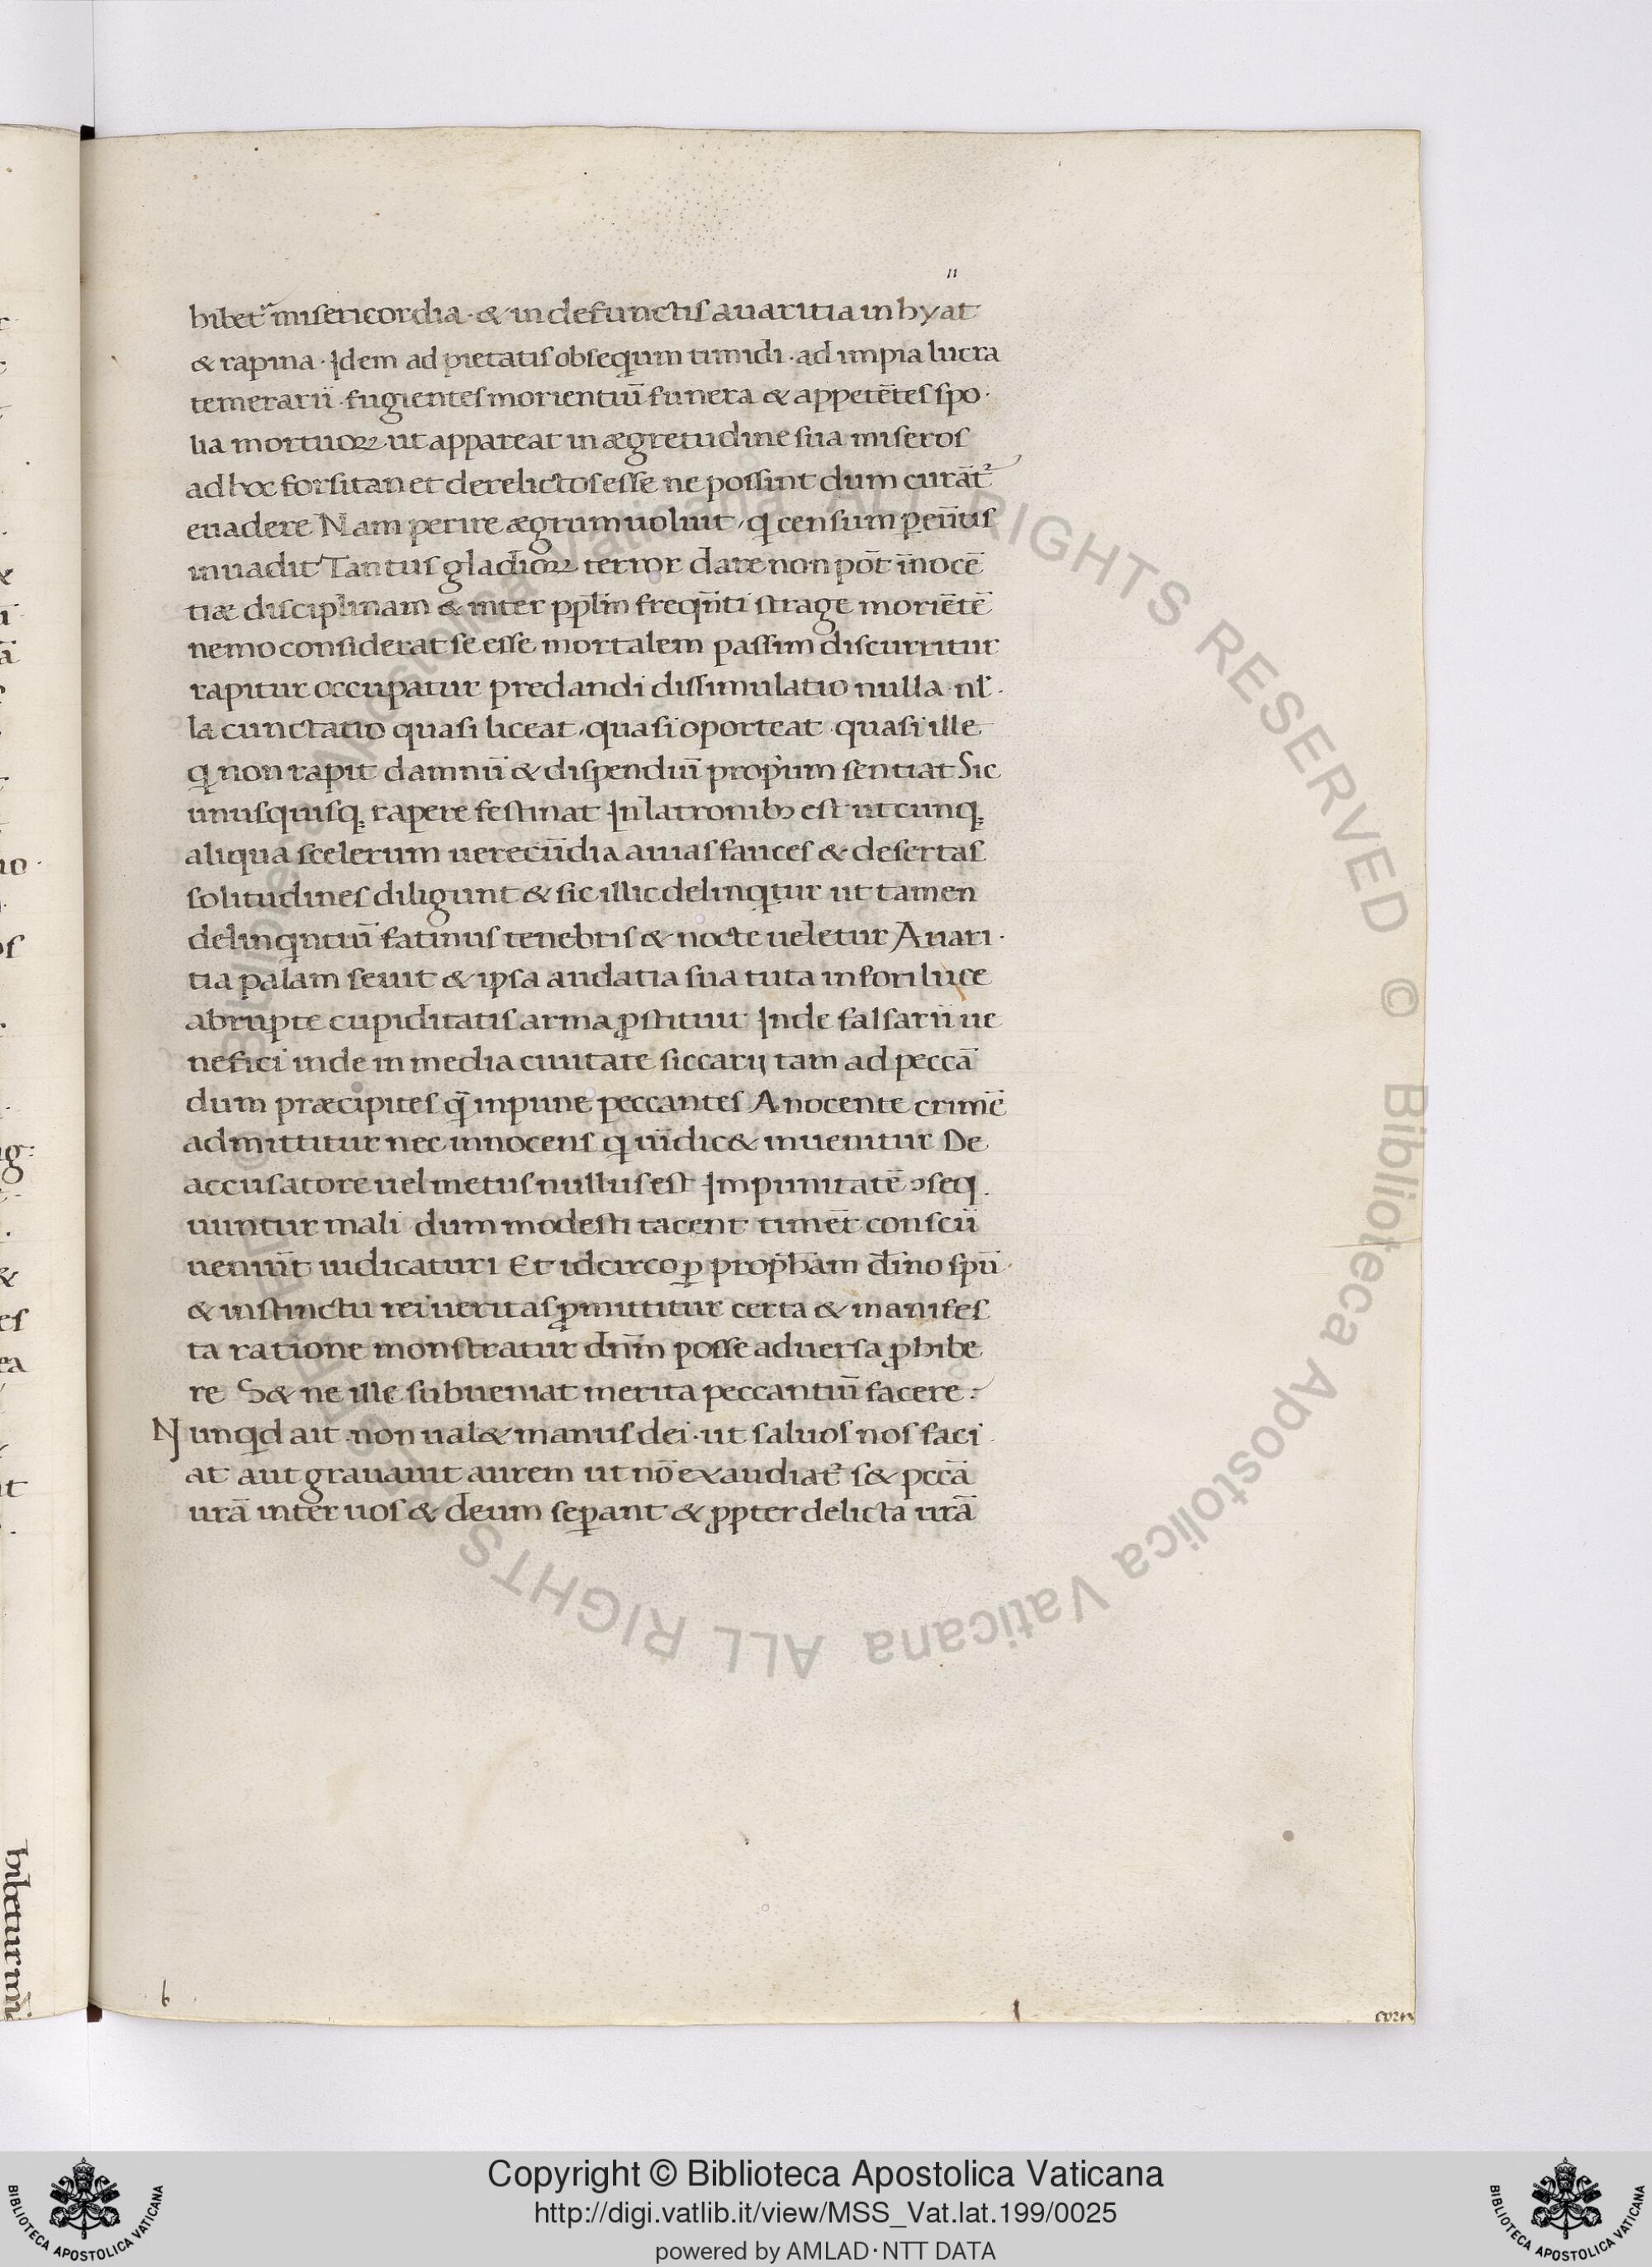 11
hibet᷑ misericordia · & in defunctis auaritia in hyat
& rapina · Idem ad pietatis obseqium timidi · ad impia lucra
temerarii · fugientes morientiū funera & appetētes spo·
lia mortuoꝝ · ut appareat in ægretudine sua miseros
ad hoc forsitan et derelictos esse ne possint dum curāt᷑
euadere Nam perire ægrum uoluit , q censum ꝑeūtis
inuadit Tantus gladioꝝ terror dare non pōt īnocē
tiæ disciplinam & inter ppl̄m freqn̄ti strage moriētē
nemo considerat se esse mortalem passim discurritur
rapitur occupatur predandi dissimulatio nulla · nl̄·
la cunctatio quasi liceat , quasi oporteat · quasi ille
q non rapit damnū & dispendiū proprium sentiat Sic
unusquisq; rapere festinat In latronibꝫ est ut cunq;
aliqua scelerum uerecūdia auias fauces & desertas
solitudines diligunt & sic illic delinqtur ut tamen
delinqntiū fatinus tenebris & nocte ueletur Auari·
tia palam seuit & ipsa audatia sua tuta in fori luce
abrupte cupiditatis arma ꝓstituit Inde falsarii ue
nefici inde in media ciuitate siccarij tam ad peccā
dum præcipites q̄ inpune peccantes A nocente crimē
admittitur nec innocens q uīdic& inuenitur De
accusatore uel metus nullus est Impunitatē ↄseq
uuntur mali dum modesti tacent timēt conscii
ueniūt iudicaturi Et idcirco ꝑ proph̄am d̄ino spū·
& instinctu rei ueritas ꝓmittitur certa & manifes
ta ratione monstratur dn̄m posse aduersa ꝓhibe
re S& ne ille subueniat merita peccantiū facere :
Nunqd ait · non ual& manus dei · ut saluos nos faci
at aut grauauit aurem ut nō exaudiat᷑ s& pccā
urā inter uos & deum seꝑant & ꝓpter delicta urā
hibetur mi
6
corn
© Biblioteca Apostolica Vaticana ALL RIGHTS RESERVED © Biblioteca Apostolica Vaticana ALL RIGHTS
BIBLIOTECA APOSTOLICA VATICANA
Copyright © Biblioteca Apostolica Vaticana
http://digi.vatlib.it/view/MSS_Vat.lat.199/0025
powered by AMLAD·NTT DATA
BIBLIOTECA APOSTOLICA VATICANA